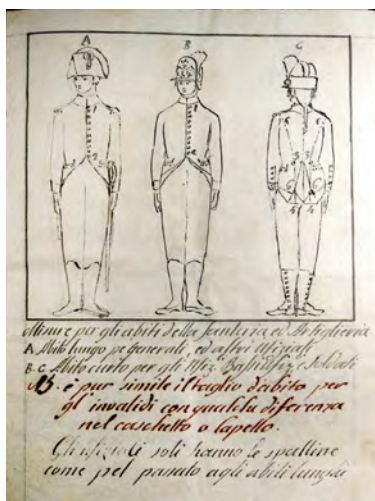 A B C
Misure per gli abiti della fanteria ed Artiglieria
A. Abito lungo pe generali, ed altri Ufiziali
B. C. Abito curto per gli Ufiz. Bassi Ufiz. e Soldati
NB. è pur simile il taglio d'abito per
gl' invalidi con qualche diferenza
nel caschetto o lapello.
Gli ufiziali soli hanno le spalline
come pel passato agli abiti lunghi